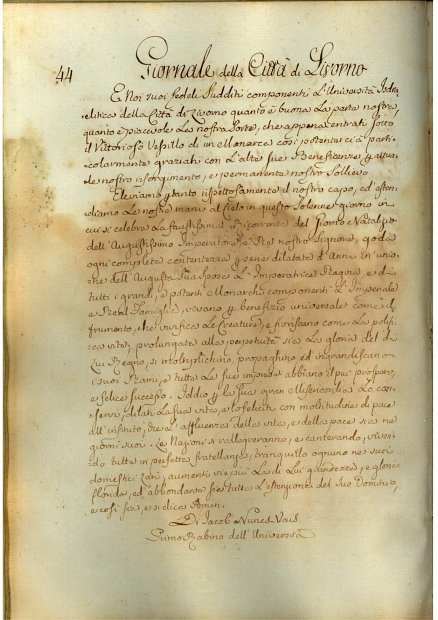 44 Giornale della Città di Livorno
E Noi suoi fedeli Sudditi componenti L'Università Isdra=
=elitica della Città di Livorno quanto è buona La parte nostra,
quanto è piacevole La nostra Sorte, che appena entrati sotto
il Vittorioso Vessillo di un Monarca così potente ci à parti=
=colarmente graziati con L'alte sue Beneficenze p attua=
le nostro risorgimento, e permanente nostro Sollievo
Eleviamo p tanto rispettosamente il nostro capo, ed esten=
diamo Le nostre mani al Cielo in questo Solenne giorno in
cui si celebra La faustissima Ricorrenza del Giorno Natalizio
dell'Augustissimo Imperatore, e Re nostro Signore, goda
ogni completa contentezza p una dilatata d'Anni in unio=
ne dell'Augusta Sua Sposa L'Imperatrice Regina, e di
tutti i grandi, e potenti Monarchi componenti L'Imperiale
e Real Famiglia, vivano p benefizio universale come il
frumento, che vivifica Le Creature, e fioriscano come La
vite, prolungata alla perpetuità sia La gloria del di
Lui Regno, si moltiplichino, propaghino ed ingrandiscano
i suoi Rami, e tutte Le sue imprese abbiano il più prospero,
e felice successo. Iddio p la sua gran Misericordia La
conservi, dilati La sua vita, e lo feliciti con moltitudine di pace
all'infinito, che L'affluenza della vita, e della pace sia ne
giorni suoi. Le Nazioni si rallegreranno, e canteranno,
tutte in perfetta fratellanza, tranquillo ognuno ne suoi
domestici Lari, aumenti vie più La di Lui grandezza, e gloria
florida, ed abbondante sia tutta L'estenzione del Suo Dominio,
e così sia, e si dica Amen.
Di Jacob Nunes Vais
Primo Rabino dell'Università